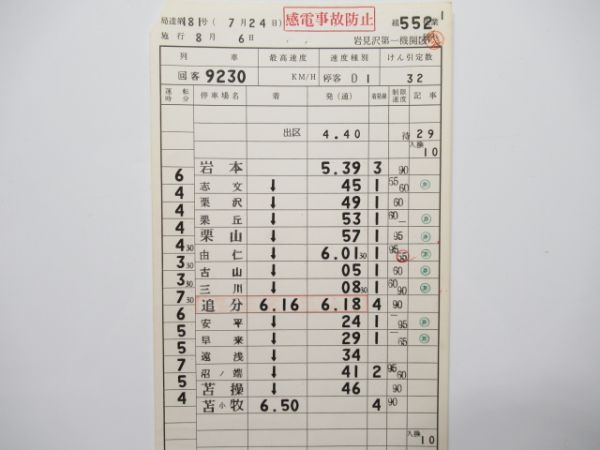 局達第181号(7月24日) 感電事故防止 組552業1
施行 8月 6日 岩見沢第一機関区
列 車 最高速度 速度種別 けん引定数
回客 9230 KM/H 停客 D1 32
運転時分 停車場名 着 発(通) 着発線 制限速度 記事
出区 4.40 待29
入換10
岩本 5.39 3 90
6
志文 ↓ 45 1 55 60
4
栗沢 ↓ 49 1 60
4
栗丘 ↓ 53 1 60 —
4
栗山 ↓ 57 1 95
4 30
由仁 ↓ 6.01 30 1 95 55
3 30
古山 ↓ 05 1 60
3 30
三川 ↓ 08 30 1 60 90
7 30
追分 6.16 6.18 4 90
6
安平 ↓ 24 1 — 95
5
早来 ↓ 29 1 — 65
5
遠浅 ↓ 34
7
沼ノ端 ↓ 41 2 95 60
5
苫操 ↓ 46 90
4
苫小牧 6.50 4 90
入換10